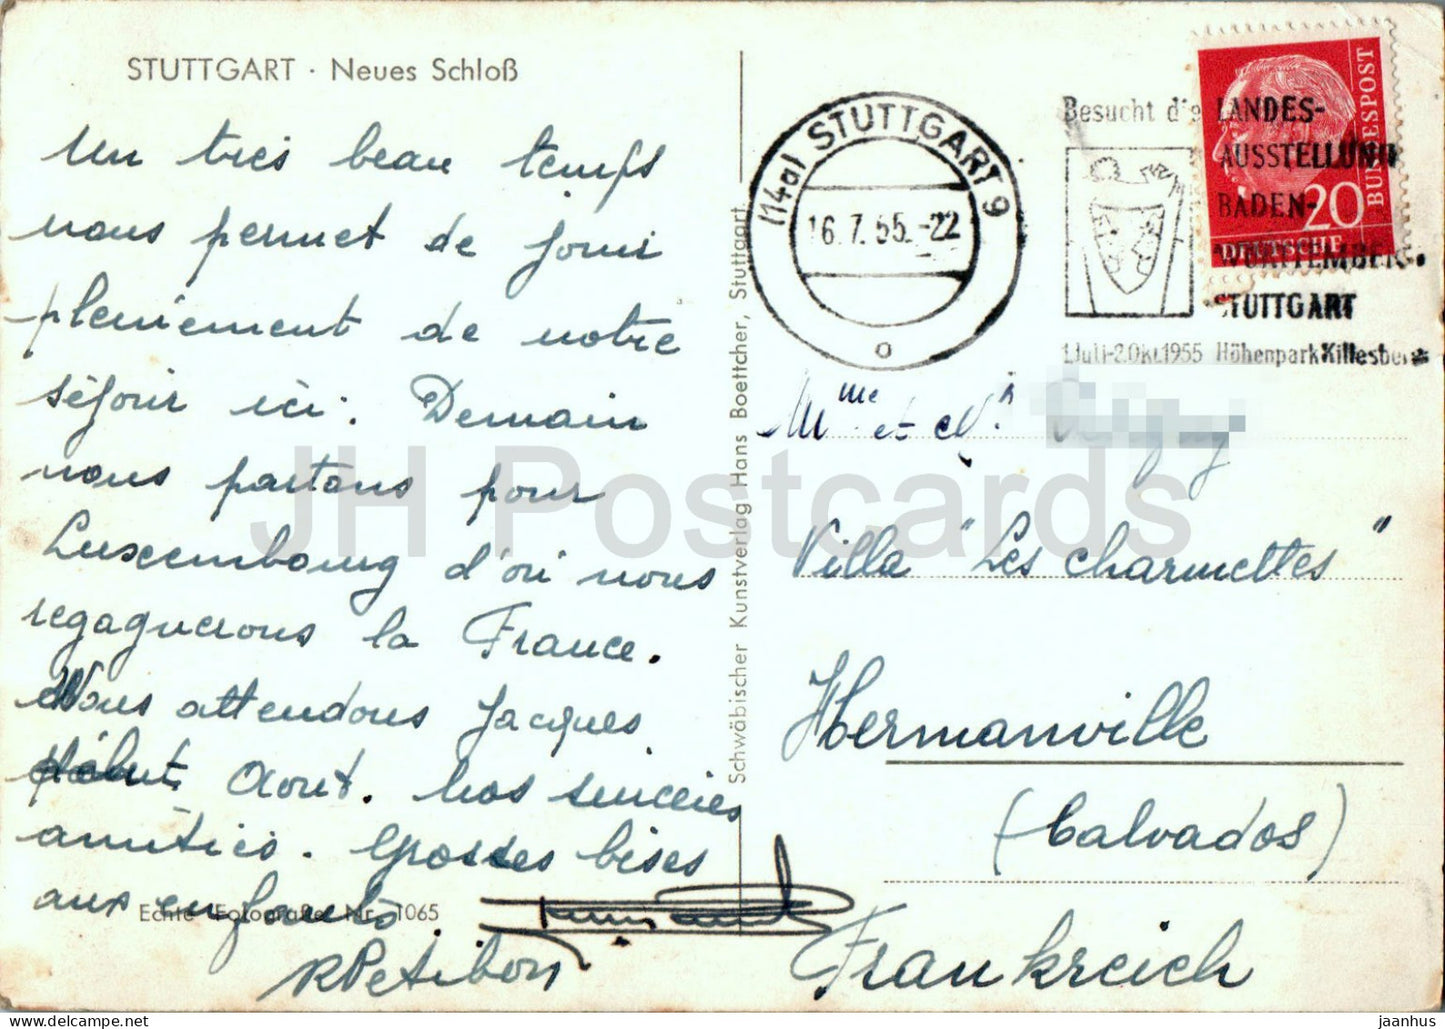 STUTTGART · Neues Schloß
Un très beau temps
nous permet de jouir
pleinement de notre
séjour ici. Demain
nous partons pour
Luxembourg d'où nous
regagnerons la France.
Nous attendons Jacques
début Aout. Nos sincères
amitiés. Grosses bises
aux enfants
RPetibon
Echte Fotografie Nr. 1065
Schwäbischer Kunstverlag Hans Boettcher, Stuttgart
(14a) STUTTGART 9
16.7.55.-22
o
Besucht die LANDES-
AUSSTELLUNG
BADEN-
WÜRTTEMBERG
STUTTGART
1.Juli-2.Okt.1955 Höhenpark Killesberg
20
DEUTSCHE
BUNDESPOST
Mme et Mr
Villa "Les Charmettes"
Hermanville
(Calvados)
Frankreich
JH Postcards
delcampe.net
jaanhus